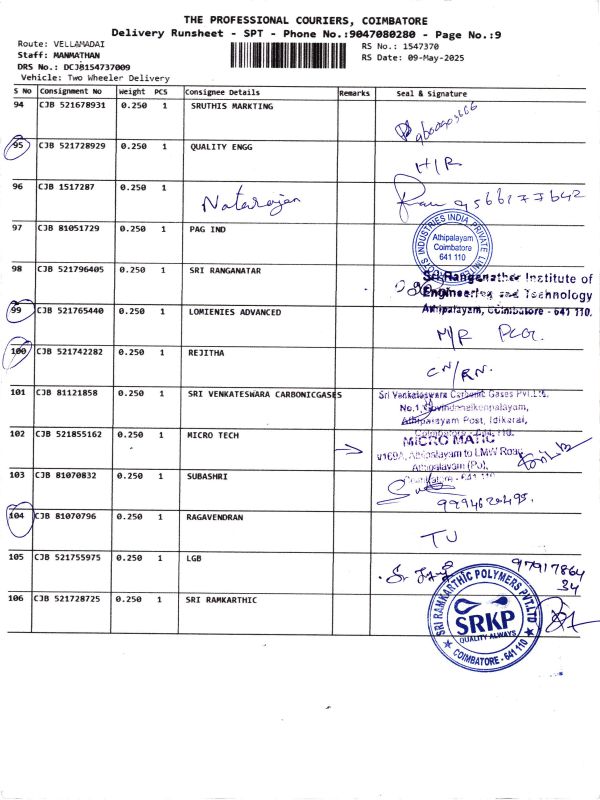 THE PROFESSIONAL COURIERS, COIMBATORE
Delivery Runsheet - SPT - Phone No.:9047080280 - Page No.:9
Route: VELLAMADAI
RS No.: 1547370
Staff: MANMATHAN
RS Date: 09-May-2025
DRS No.: DCJB154737009
Vehicle: Two Wheeler Delivery
S No Consignment No Weight PCS Consignee Details Remarks Seal & Signature
94 CJB 521678931 0.250 1 SRUTHIS MARKTING
95 CJB 521728929 0.250 1 QUALITY ENGG
H/R
96 CJB 1517287 0.250 1
Natarajan
9566177642
97 CJB 81051729 0.250 1 PAG IND
INDUSTRIES INDIA PRIVATE
Athipalayam
Coimbatore
641 110
98 CJB 521796405 0.250 1 SRI RANGANATAR
Sri Ranganather Institute of
Engineering and Technology
Athipalayam, Coimbatore - 641 110.
99 CJB 521765440 0.250 1 LOMIENIES ADVANCED
M/R
100 CJB 521742282 0.250 1 REJITHA
CN/RN.
101 CJB 81121858 0.250 1 SRI VENKATESWARA CARBONICGASES
Sri Venkateswara Carbonic Gases Pvt.Ltd.
No.1, Govindanaikenpalayam,
Athipalayam Post, Idikarai,
Coimbatore - 641 110.
102 CJB 521855162 0.250 1 MICRO TECH
MICRO MATIC
Athipalayam to LMW Road
Athipalayam (Po),
Coimbatore - 641 110
103 CJB 81070832 0.250 1 SUBASHRI
104 CJB 81070796 0.250 1 RAGAVENDRAN
TU
105 CJB 521755975 0.250 1 LGB
97917864
34
106 CJB 521728725 0.250 1 SRI RAMKARTHIC
SRI RAMKARTHIC POLYMERS PVT.LTD
SRKP
QUALITY ALWAYS
COIMBATORE - 641 110